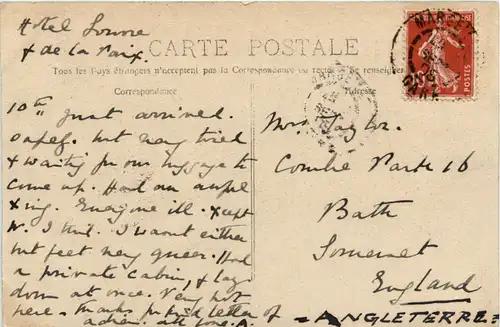 Hotel Louvre
& de la Paix.
CARTE POSTALE
Tous les Pays étrangers n'acceptent pas la Correspondance au recto. Se renseigner
Correspondance
Adresse
10th Just arrived.
but very tired
& waiting for our luggage to
come up. Had an awful
xing. Everyone ill. xcept
W. & I. I wasnt either
but felt very queer. Had
a private cabin, & lay
down at once. Very hot
here. Thanks for letter of
all love. A.
Mrs Taylor.
Combe Park 16
Bath
Somerset
England
= ANGLETERRE =
POSTES